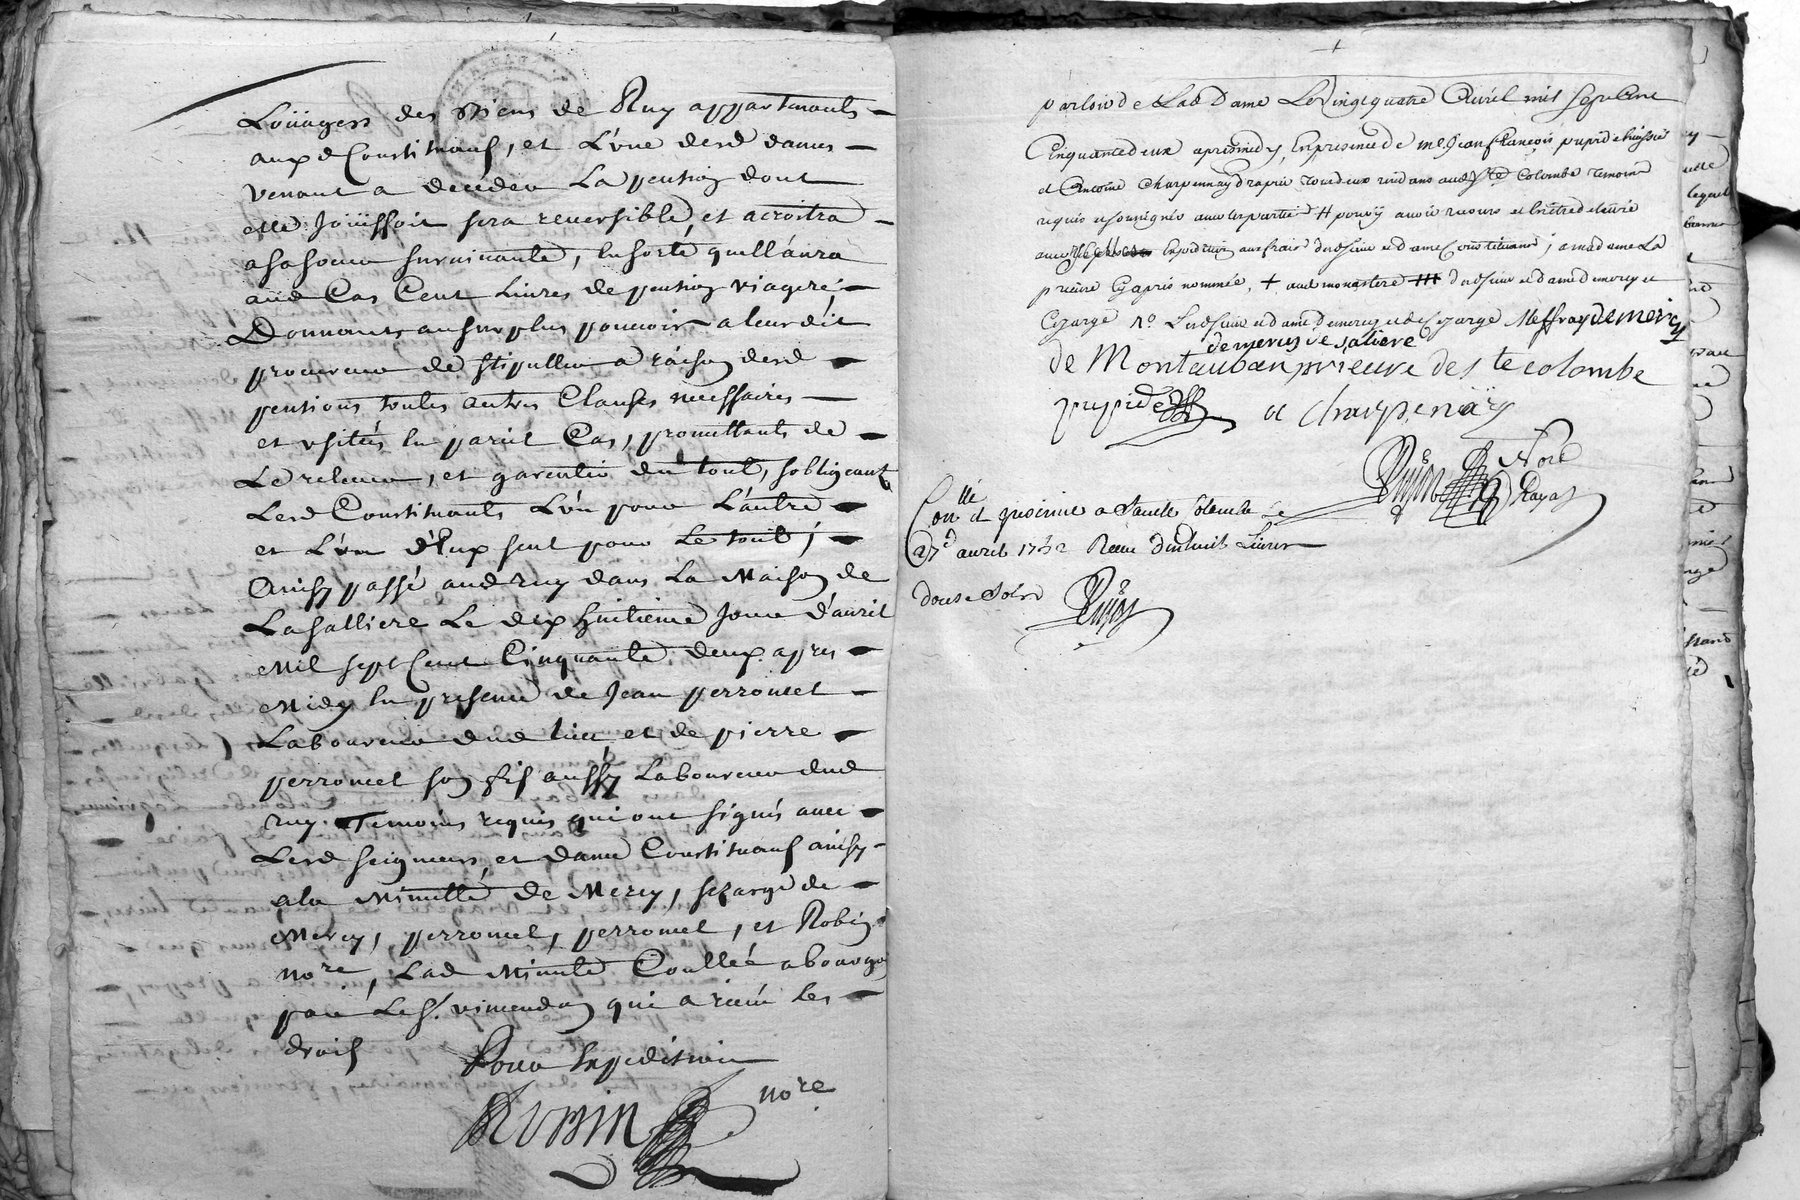 Loüages des Biens de Ruy appartenants
auxd Constituans, et L'une desd dames
venant a deceder La pension dont
elle Joüissoit sera reversible, et acroitra
a sa soeur survivante, en sorte quell'aura
aud Cas Cent Livres de pension viagere,
Donnants au surplus pouvoir a leurdit
procureur de stipuller a raison desd
pensions toutes autres Clauses necessaires
et usités en pareil Cas, promettants de
Le relever, et garentir du tout, s'obligeant
Lesd Constituants L'un pour L'autre
et L'un d'Eux seul pour Le tout,
Ainsy passé aud ruy dans La Maison de
Lasalliere Le dix huitieme Jour d'avril
Mil sept Cent Cinquante deux apres
Midy en presence de Jean perroncel
Laboureur dud lieu, et de pierre
perroncel son fils aussy Laboureur dud
ruy. Temoins requis qui ont signés avec
Lesd seigneurs, et dame Constituans ainsy
a la Minutte, de Mercy, sezarge de
Mercy, perroncel, perroncel, et Robin
nore, Lad Minute Coullée a bourgoin
par Le Sr. vimendon qui a reçu les
droits
Pour Expedition
Robin nore
parloir de Lad Dame Le Vingt quatre Avril mil sept Cent
Cinquante deux apres midy, En presence de me Jean françois pupid
et Antoine Charpennay drapier tous deux residans aud Ste Colombe Temoins
requis et soussignés avec les parties # pouvoir avoir recours et
Expedition aux frais desd sieur et dame Constituans, a madame La
prieure Cy apres nommée, + aud monastere desd sieur et dame de mercy et
Cezarge ro. Lesd sieur et dame de mercy et de Cezarge Meffray de mercy
de mercy de saliere
de Montauban prieure de ste colombe
pupid A charpenay
Nore Royal
Conllé et  a Sainte Colombe Le
27e avril 1752 Reçu dix huit Livres
douse Sols